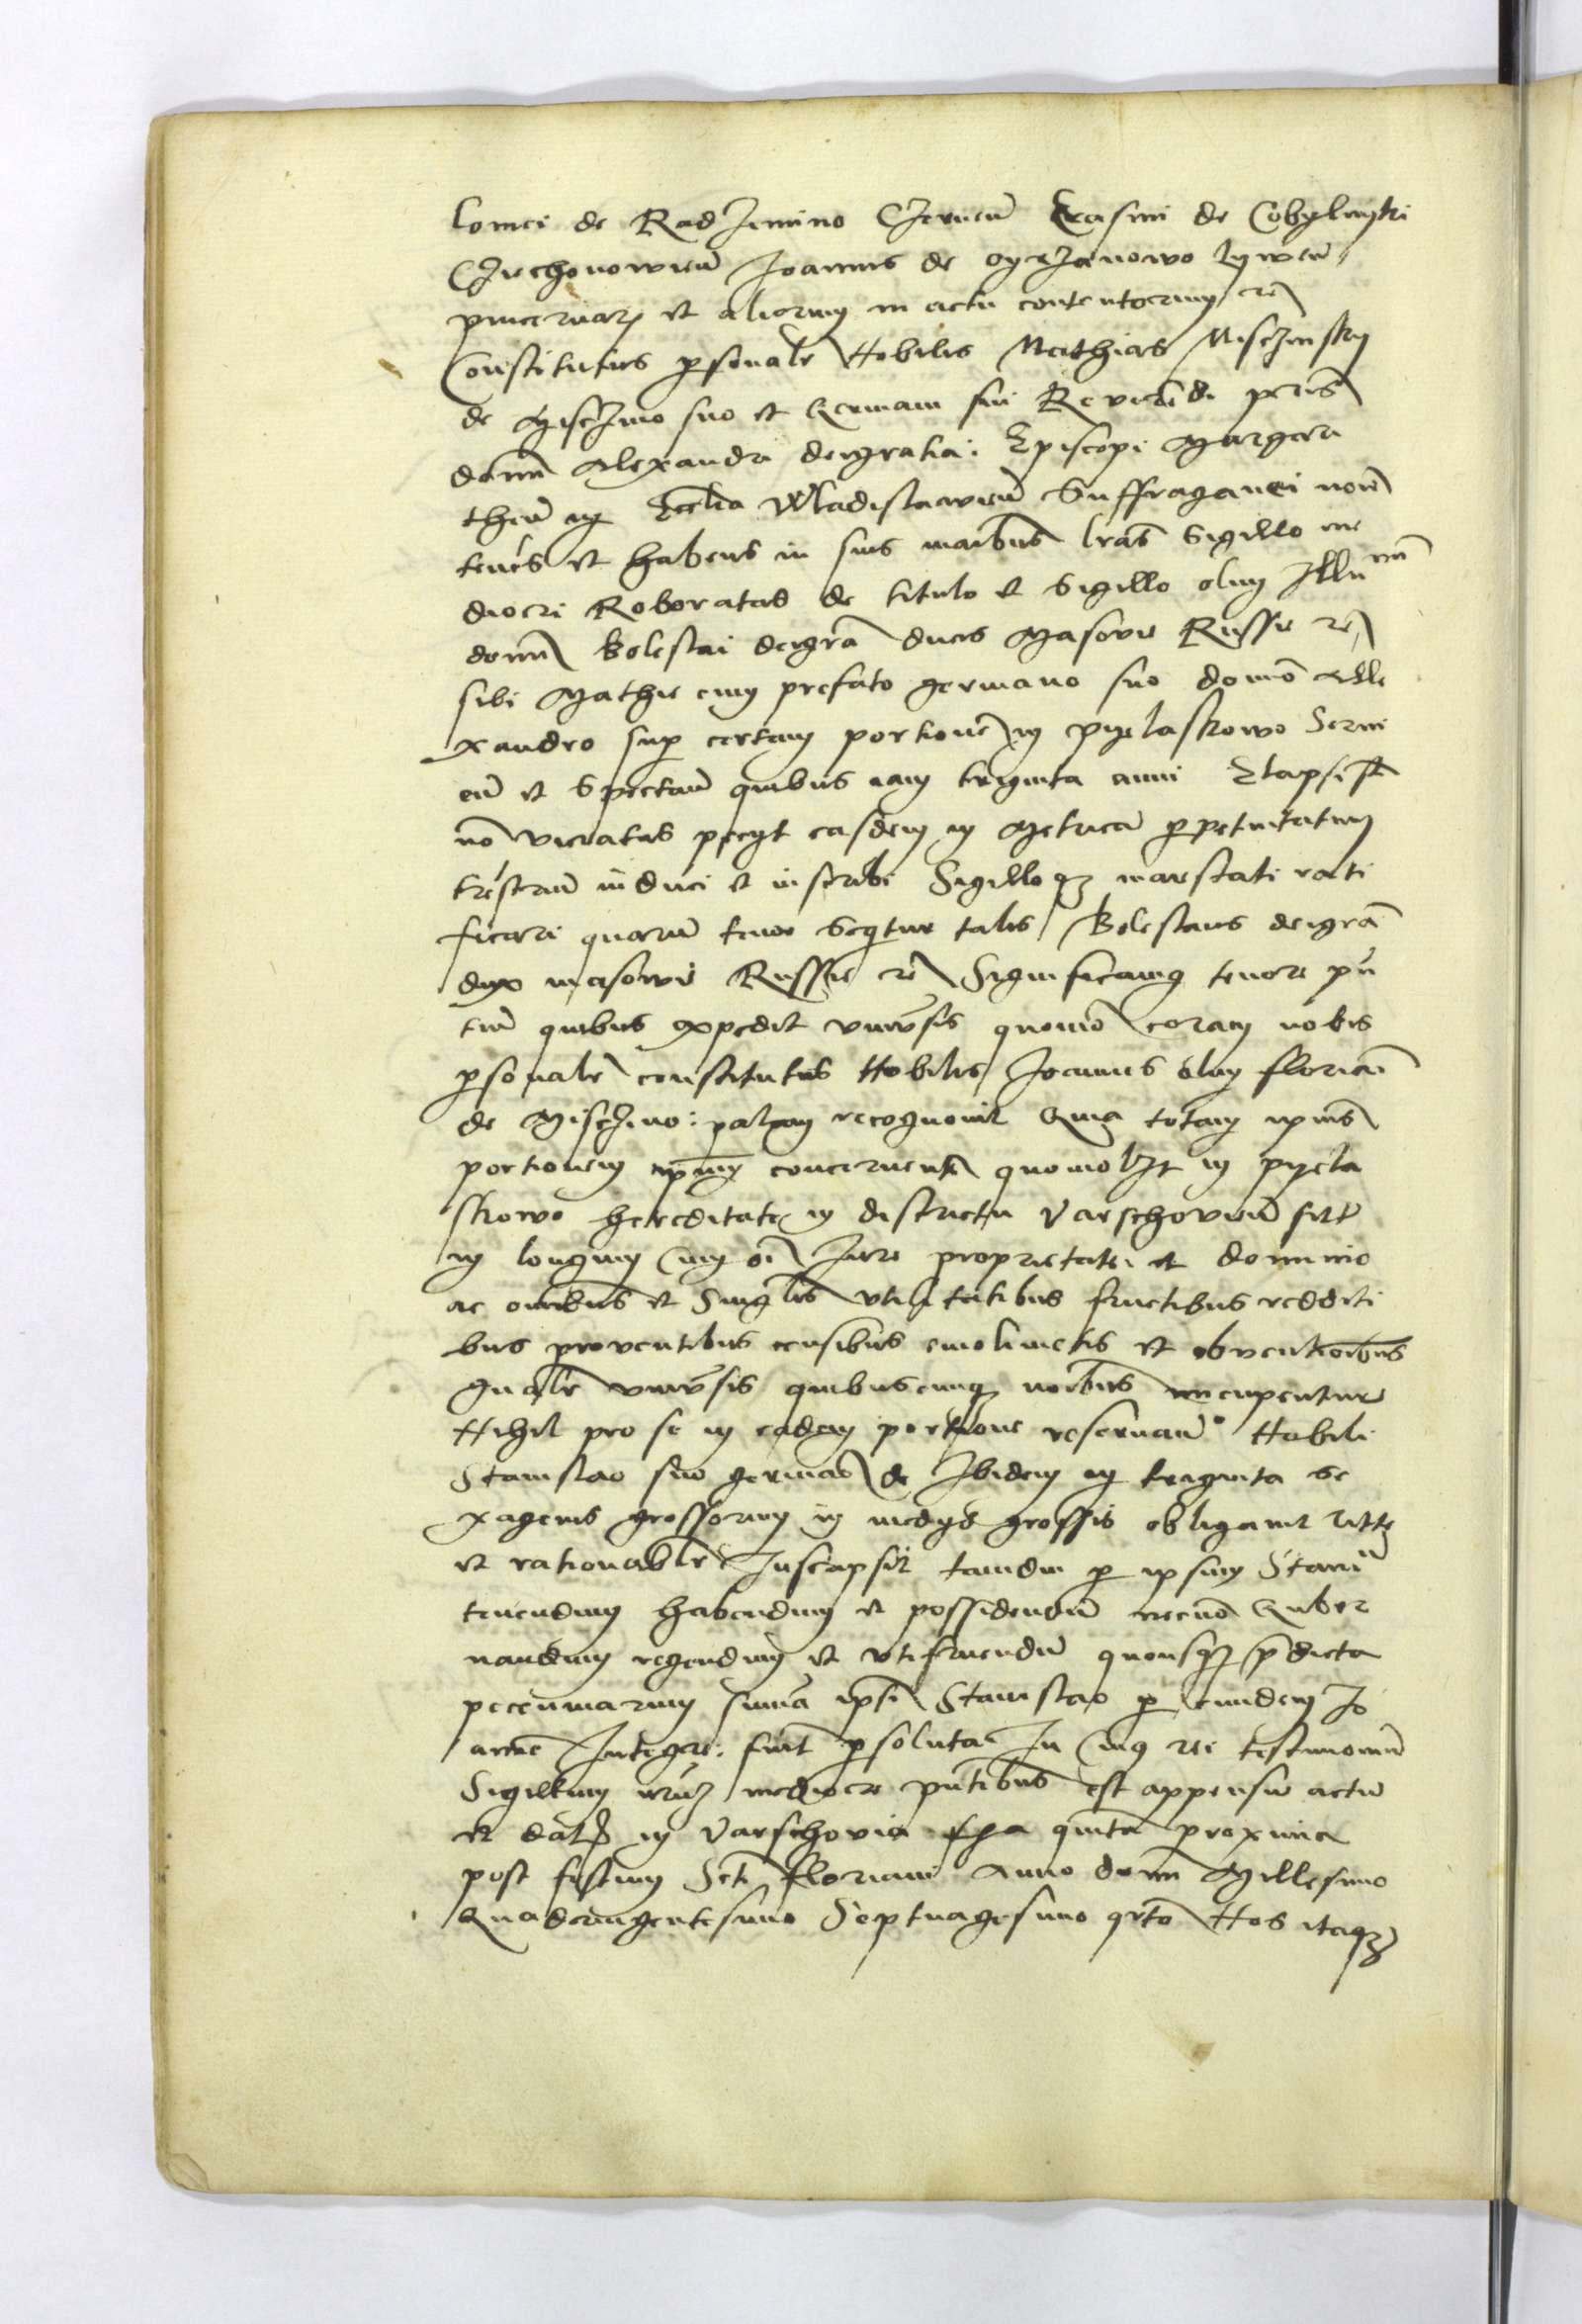 lomei de Radzimino Czernen̄ Erasmi de Cobylniky
Cziechonowien̄ Joannis de Myrzanowo Lywen̄
pincernar et aliorum in actu contentorum rc̄
Constitutus psonalr̄ Nobilis Mathias Misczinsky
de Misczino suo et Germani sui Reverēdi patris
domini Alexandri dei gratia Episcopi Margari
then̄ in Ecclia Wladislavien̄ Suffraganei noīe
tenēs et habens in suis manibus lrās Sigillo me
diocri Roboratas de titulo et Sigillo olim Illu
domini Boleslai dei grā ducis Masovie Russie rc̄
sibi Mathie cum prefato germano suo domino Alle
xandro sup certam portionē in Pyelaskowo Servi
en̄ et Spectan̄ quibus iam triginta anni Elapsi st̄
nō viciatas pecyt easdem in Metricā ppetuitatum
trēstrium induci et inscribi Sigilloq maiestati rati
ficari quarum tenor sequitur talis Boleslaus dei grā
dux masovie Russie rc̄ Significamus tenore pn̄
tium quibus expedit universis quomō coram nobis
psonalr̄ constitutus Nobilis Joannes olim floriani
de Misczino palam recognovit Quia totam ipsius
portionem ipsum concernentē quomolzt in Pyela
skowo hereditate in districtu Varschovien̄ sitā
in longum cum oī Jure proprietate et dominio
ac omibus et Singlis utilitatibus fructibus redditi
bus proventibus censibus emolimētis et obventionibus
gnalr̄ univsis quibuscunq noibus nuncupentur
Nihil pro se in eadem portione reservan̄ Nobili
Stanislao suo germano de Ibidem in triginta se
xagenis grossorum in medys grossis obligavit ritte
et rationablr̄ Inscripsit tamdiu p ipsum Stanislaū
tenendum habendum et possidendum necnō Guber
nandum regendum et utifruendum quousq p̄dicta
peccuniarum summa ipsi Stanislao p eundem Jo
annē Integre fuit psoluta In cuius rei testimoniū
Sigillum nrūm mediocre pn̄tibus est appensum actū
et dat in Varschovia fā quinta proxima
post festum Scti floriani Anno domini Millesimo
Quadringentesimo Septuagesimo qrto Nos itaq